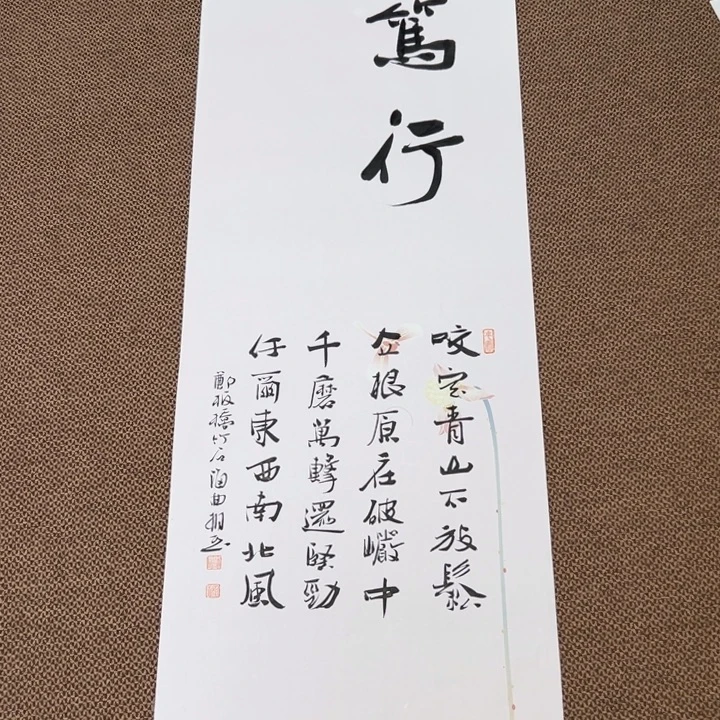 篤行
咬定青山不放鬆
立根原在破巖中
千磨萬擊還堅勁
任爾東西南北風
鄭板橋竹石